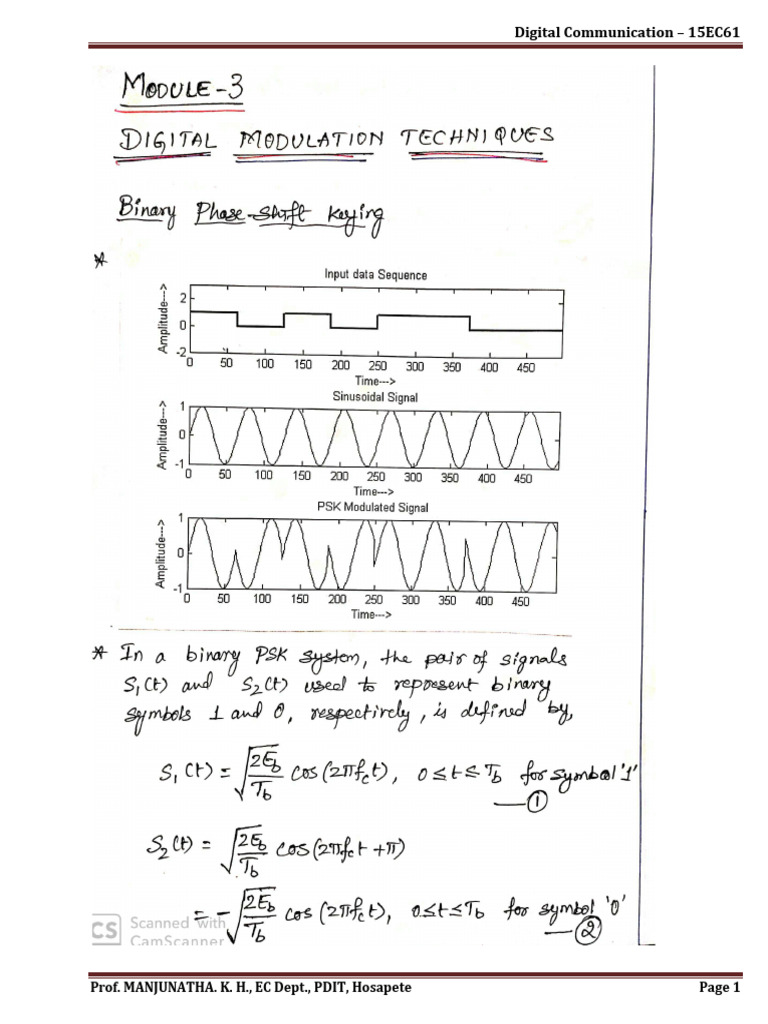 Digital Communication – 15EC61
MODULE-3
DIGITAL MODULATION TECHNIQUES
Binary Phase-shift keying
*
Input data Sequence
Amplitude--->
2
0
-2
0 50 100 150 200 250 300 350 400 450
Time--->
Sinusoidal Signal
Amplitude--->
1
0
-1
0 50 100 150 200 250 300 350 400 450
Time--->
PSK Modulated Signal
Amplitude--->
1
0
-1
0 50 100 150 200 250 300 350 400 450
Time--->
* In a binary PSK system, the pair of signals
S₁(t) and S₂(t) used to represent binary
symbols 1 and 0, respectively, is defined by,
S₁(t) = √(2E_b/T_b) cos(2πf_ct), 0≤t≤T_b for symbol '1'
—①
S₂(t) = √(2E_b/T_b) cos(2πf_ct +π)
= -√(2E_b/T_b) cos(2πf_ct), 0≤t≤T_b for symbol '0'
—②
CS Scanned with
CamScanner
Prof. MANJUNATHA. K. H., EC Dept., PDIT, Hosapete Page 1